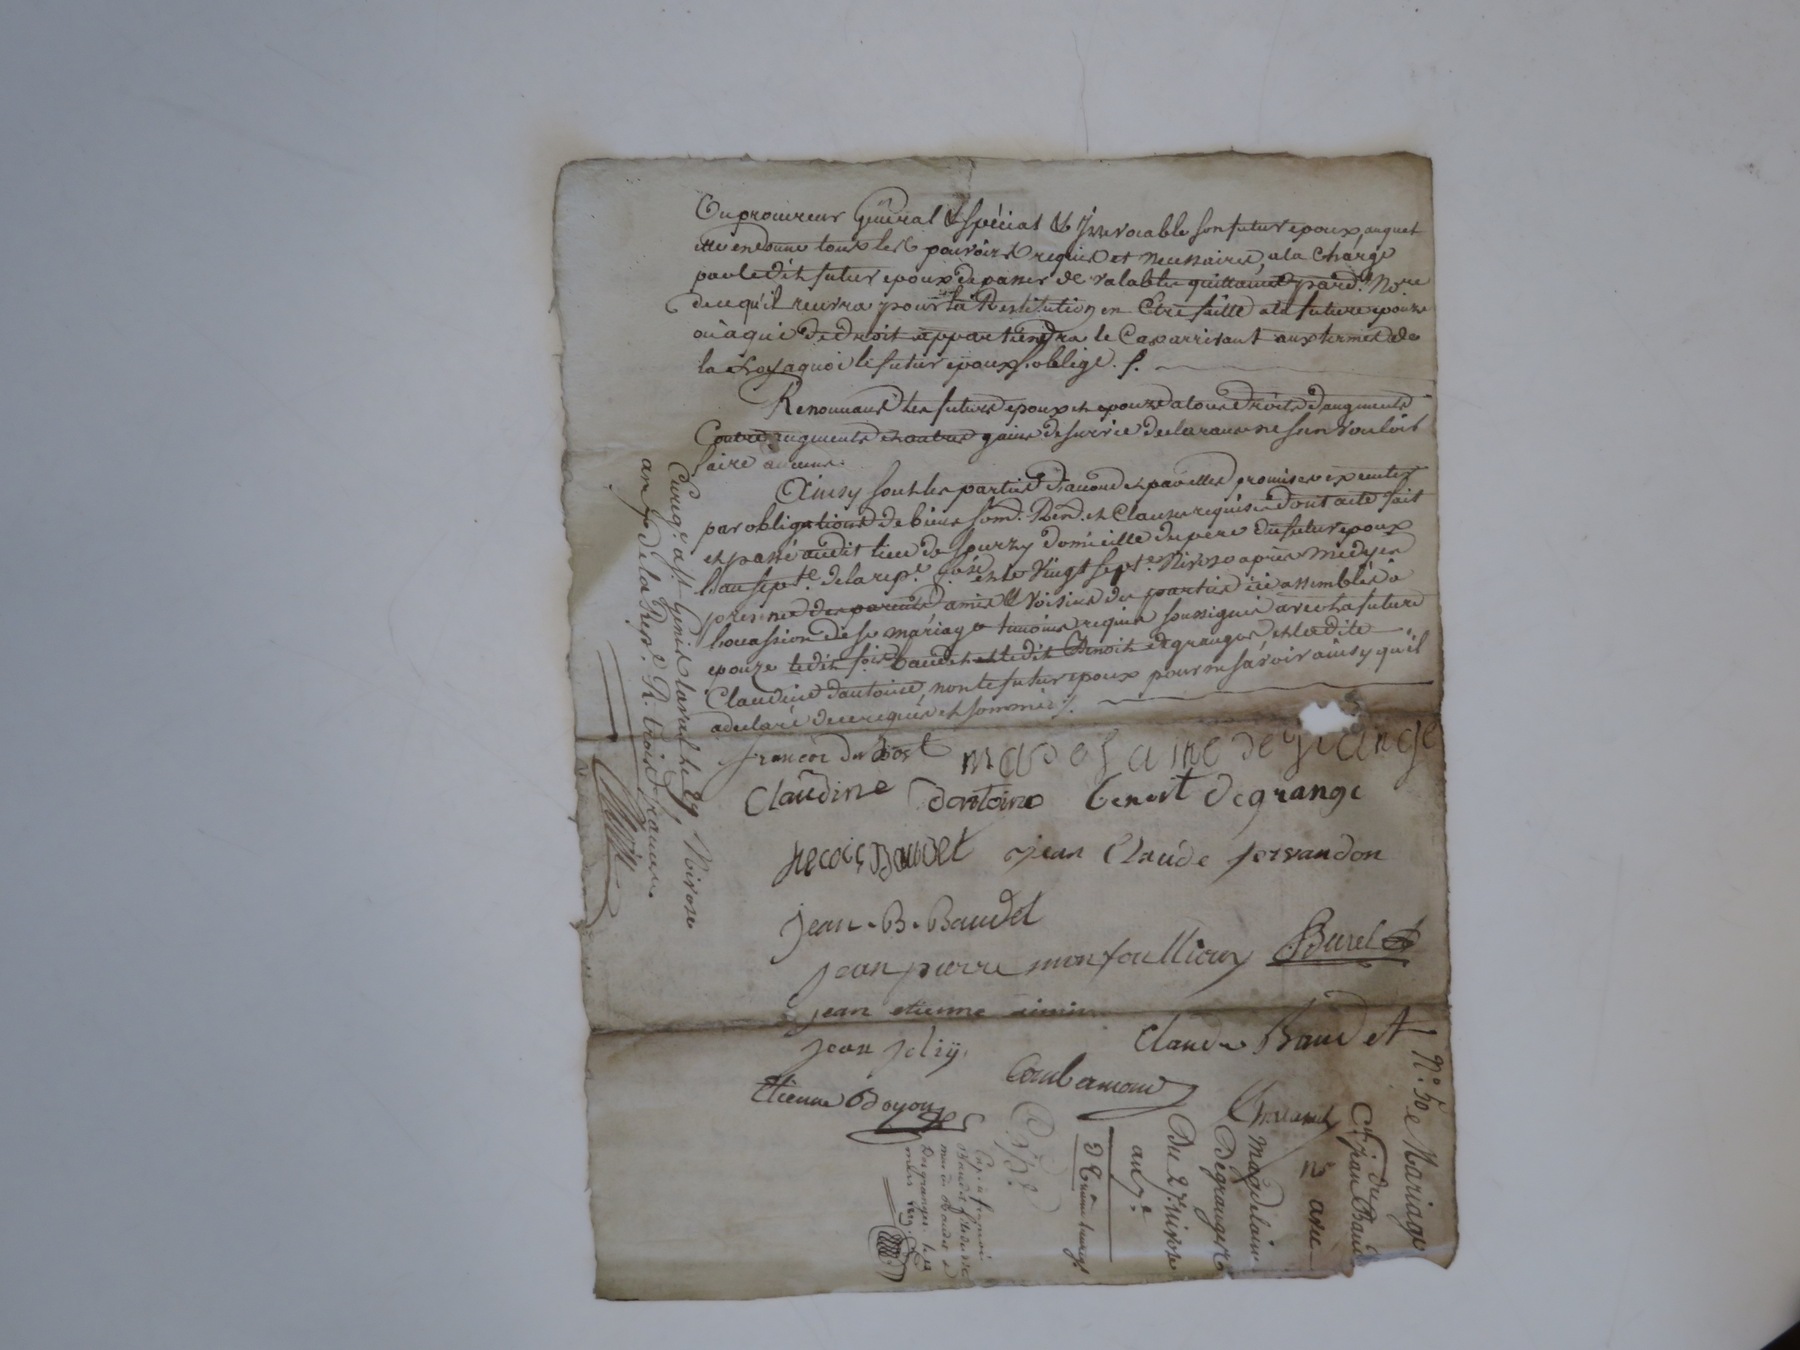 Du procureur Général & spécial & Irrevocable son futur epoux, auquel
elle en donne tous les pouvoirs requis et necessaires, ala charge
par ledit futur epoux de passer de valables quittances pard. No.re
de ce qu'il recevra pour la Restitution en Etre faitte ala future epouze
ou à qui de droit appartiendra le Cas arrivant aux termes de
la Loy aquoi le futur epoux s'oblige. /.
Renonceant les futurs epoux et epouze a tous droits d'augments
Contre augments et autres gains de survie declarants ne s'en vouloir
faire aucuns.
Ainsy sont les parties d'accord et par elles promis executer
par obligations de biens soum. Ren. et Clauses requises dont acte fait
et passé audit lieu de Spurzy domicille du père du futur epoux
l'an sept.e de la rep.e f.se et le vingt sept.e Nivose après midy en
presence des parents, amis & voisins des parties ici assemblés à
l'occasion de ce mariage temoins requis soussignés avec la future
epouze ledit f.ois baudet et ledit Benoit degranges et ladite
Claudine dantoine, non le futur epoux pour ne sávoir ainsy qu'il
a declaré de ce requis et sommé /.
francoi du Bost madelaine degrange
Claudine dantoine benoit degrange
Jean Claude servandon
Jean. B. Baudet
Jean pierre monfoullioux Burel
Jean etienne
Claude Baudet
Jean joliÿ
Combamond
Etienne Boyon
Enreg. a St Genest Laval le 29, Nivose
an 7 de la Rep. R. trois francs
N.° 50 Mariage
du
C.en Jean Baudet
avec
Magdelaine
Degranges
Du 27 Nivose
an 7.e